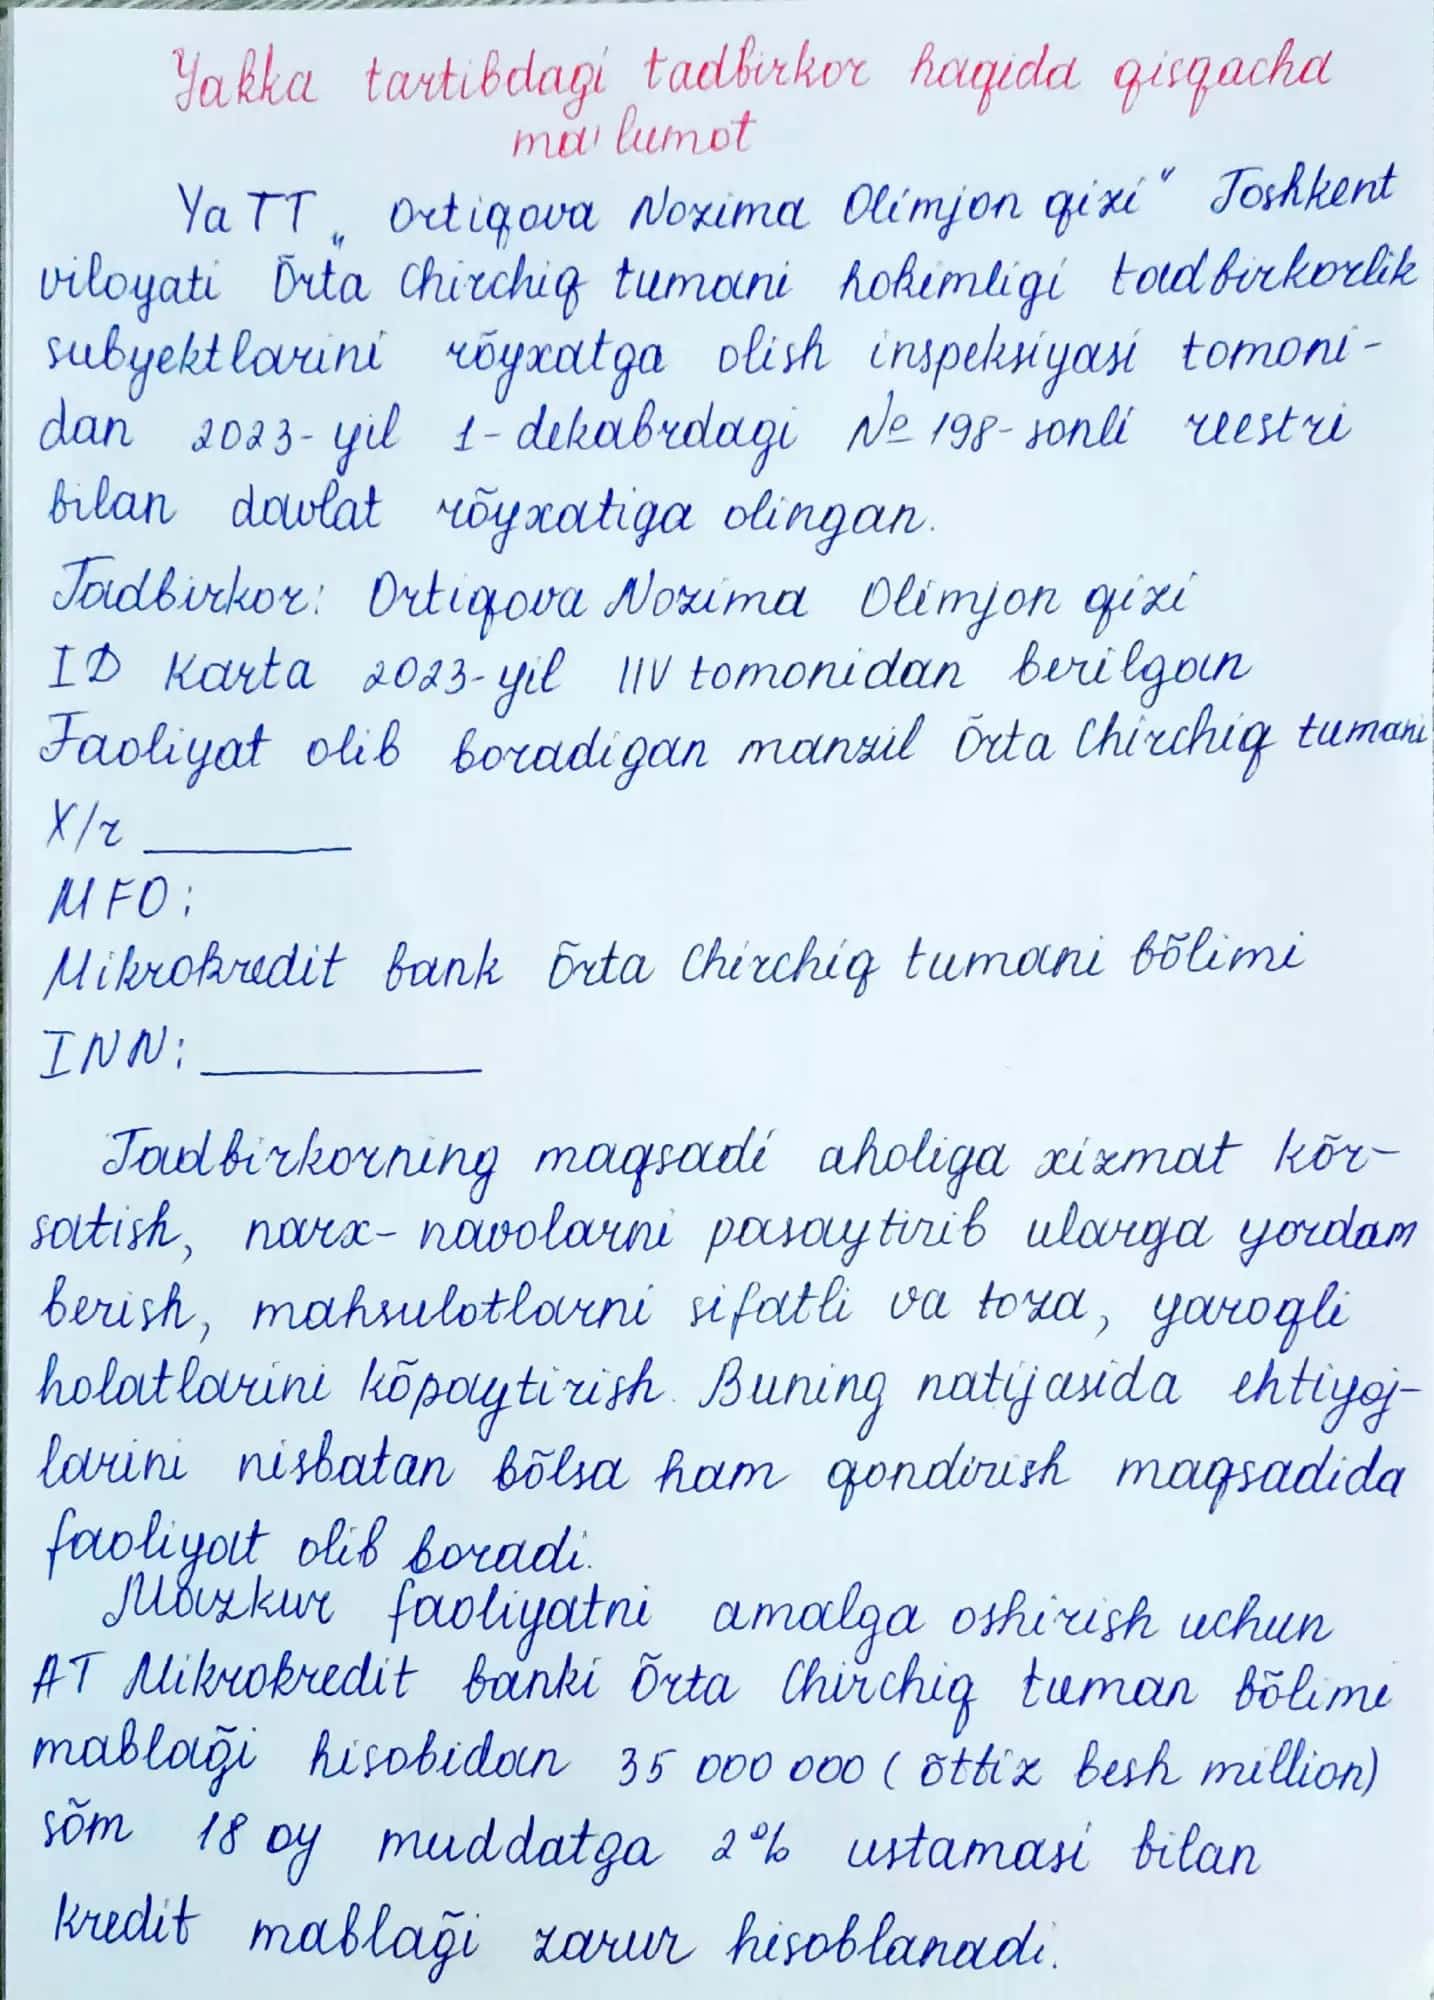 Yakka tartibdagi tadbirkor haqida qisqacha
ma'lumot
YaTT „Ortiqova Nozima Olimjon qizi“ Toshkent
viloyati Õrta Chirchiq tumani hokimligi tadbirkorlik
subyektlarini rõyxatga olish inspeksiyasi tomoni-
dan 2023-yil 1-dekabrdagi № 198-sonli reestri
bilan davlat rõyxatiga olingan.
Tadbirkor: Ortiqova Nozima Olimjon qizi
ID Karta 2023-yil IIV tomonidan berilgan
Faoliyat olib boradigan manzil Õrta Chirchiq tumani
X/r ________
MFO:
Mikrokredit bank Õrta Chirchiq tumani bõlimi
INN: ________
Tadbirkorning maqsadi aholiga xizmat kõr-
satish, narx-navolarni pasaytirib ularga yordam
berish, mahsulotlarni sifatli va toza, yaroqli
holatlarini kõpaytirish. Buning natijasida ehtiyoj-
larini nisbatan bõlsa ham qondirish maqsadida
faoliyat olib boradi.
Mazkur faoliyatni amalga oshirish uchun
AT Mikrokredit banki Õrta Chirchiq tuman bõlimi
mablag̃i hisobidan 35 000 000 (õttiz besh million)
sõm 18 oy muddatga 2% ustamasi bilan
kredit mablag̃i zarur hisoblanadi.